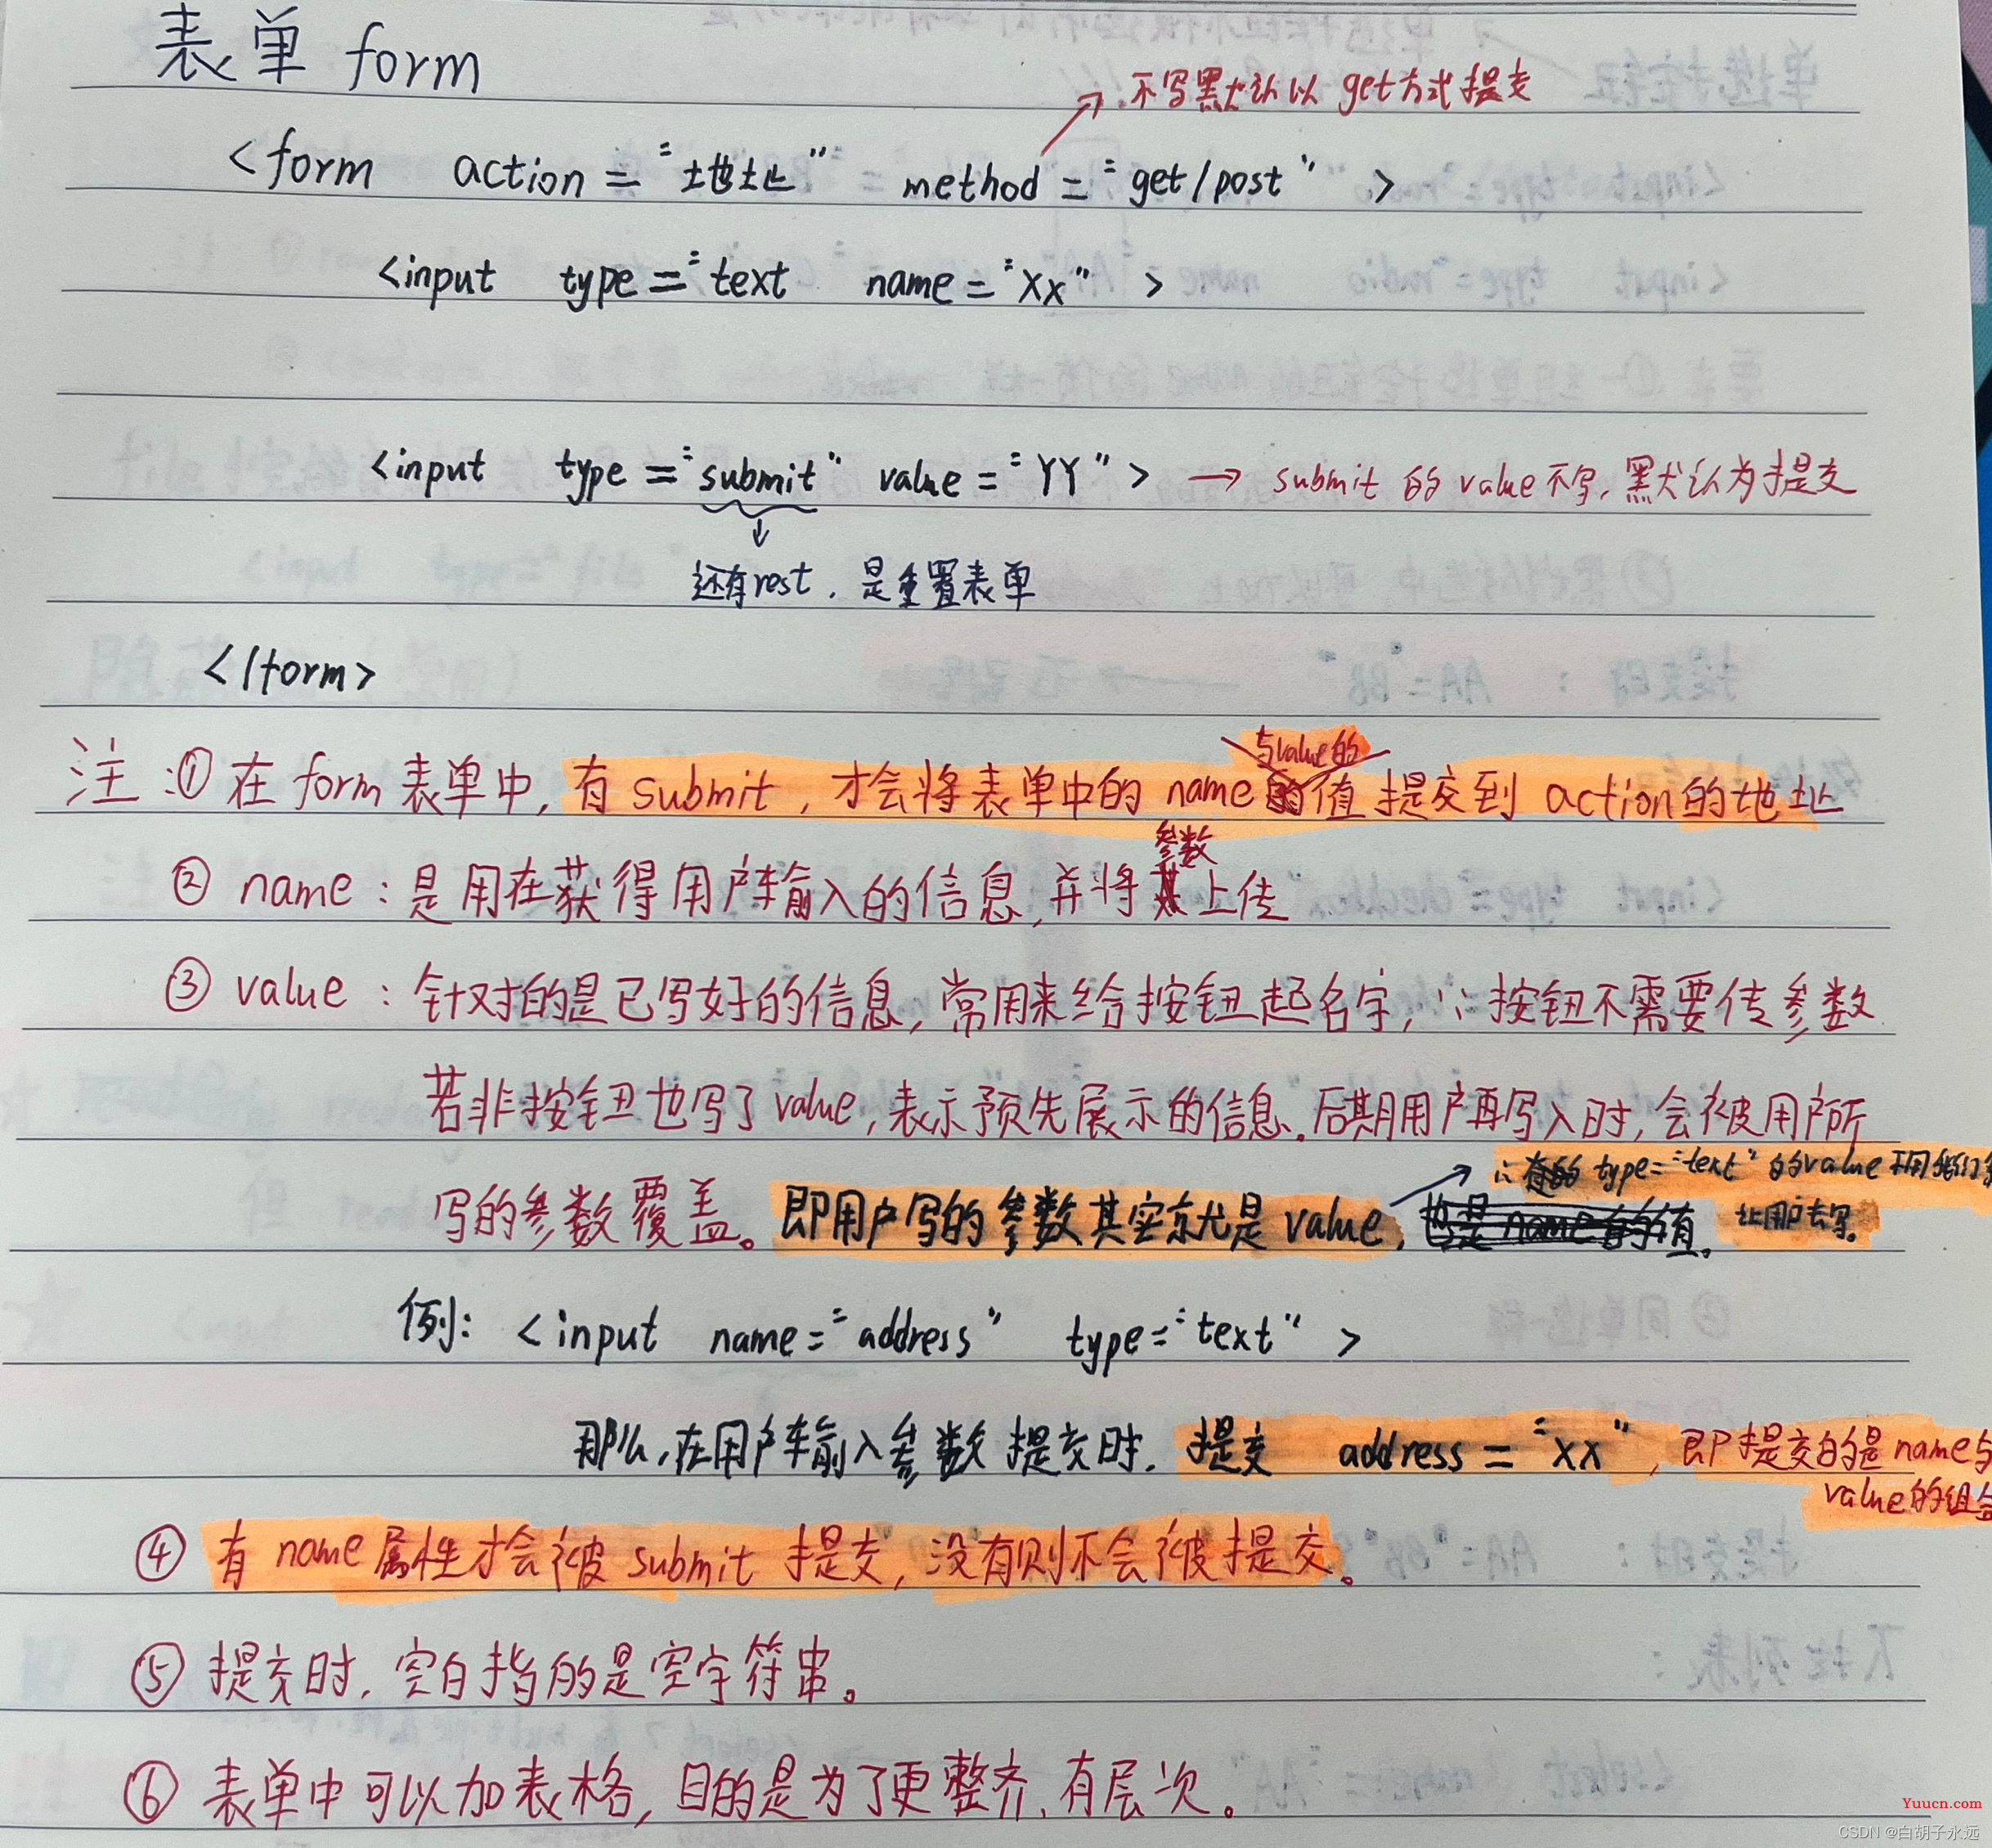 表单 form
不写默认以 get方式提交
<form action="地址" method="get/post" >
<input type="text name="XX" >
<input type="submit" value="YY"> → submit 的 value不写,默认为提交
↓
还有rest,是重置表单
</form>
与value的
注:① 在 form 表单中,有 submit,才会将表单中的 name 值 提交到 action的地址
参数
② name:是用在获得用户输入的信息,并将 上传
③ value:针对的是已写好的信息,常用来给按钮起名字,∵按钮不需要传参数
若非按钮也写了 value,表示预先展示的信息.后期用户再写入时,会被用户所
∴ type="text"的value 不用我们
写的参数覆盖。即用户写的参数其实就是 value, 也是 name 的值. 让用户去写。
例: <input name="address" type="text" >
那么,在用户输入参数提交时. 提交 address = "XX" ,即提交的是name与
value的组合
④ 有 name 属性才会被 submit 提交,没有则不会被提交。
⑤ 提交时,空白指的是空字符串。
⑥ 表单中可以加表格,目的是为了更整齐、有层次。
Yuucn.com
CSDN @白胡子永远